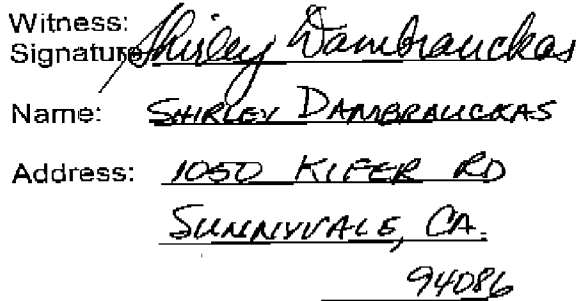 Witness:
Signature Shirley Dambrauckas
Name: SHIRLEY DAMBRAUCKAS
Address: 1050 KIFER RD
SUNNYVALE, CA.
94086